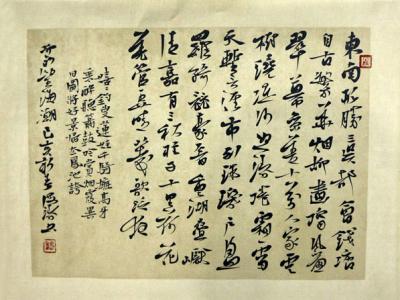 東南形勝三吳都會錢塘
自古繁華烟柳畫橋風簾
翠幕參差十萬人家雲
樹繞堤沙怒濤捲霜雪
天塹無涯市列珠璣戶盈
羅綺競豪奢重湖疊巘
清嘉有三秋桂子十里荷花
羌管弄晴菱歌泛夜
嘻嘻釣叟蓮娃千騎擁高牙
乘醉聽簫鼓吟賞烟霞異
日圖將好景歸去鳳池誇
望海潮己亥新春